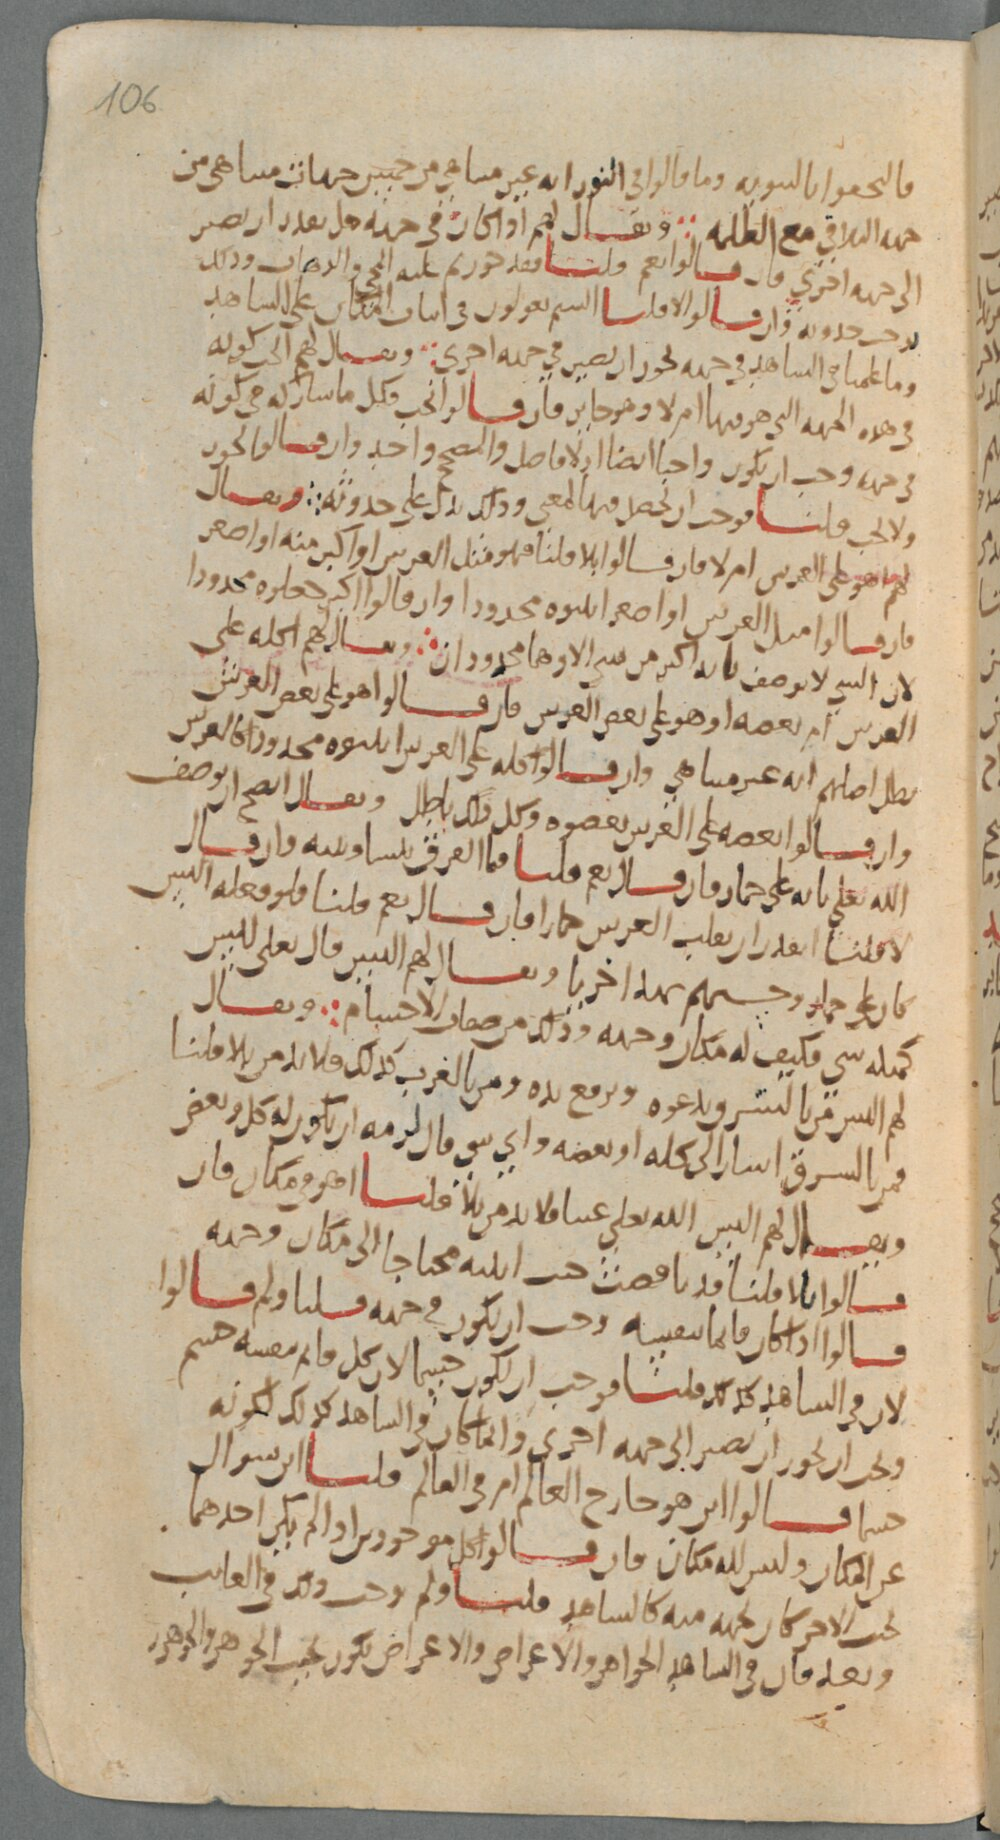 106
فالتحقوا بالثنوية وما قالوا في النور انه غير متناهي من خمس جهات متناهي من
جهة التلاقي مع الظلمة ويقال لهم اذا كان في جهة هل يقدر ان يصير
الى جهة اخرى فان قالوا نعم قلنا فقد جوزتم عليه المجي والذهاب وذلك
يوجب حدوثه وان قالوا لا قلنا الستم تعولون في اثبات المكان على الشاهد
وما علمنا في الشاهد في جهة يجوز ان يصير في جهة اخرى ويقال لهم ايجب كونه
في هذه الجهة التي هو فيها ام لا وهو جايز فان قالوا يجب فكل ما شاركه في كونه
في جهة وجب ان يكون واجبا ايضا اذ لا فاصل والمصحح واحد وان قالوا يجوز
ولا يجب قلنا فوجب ان يحصل فيها لمعنى وذلك يدل على حدوثه ويقال
لهم اهو على العرش ام لا فان قالوا بلا قلنا فهو مثل العرش او اكبر منه او اصغر
فان قالوا مثل العرش او اصغر اثبتوه محدودا وان قالوا اكبر جعلوه محدودا
لان الشي لا يوصف بانه اكبر من شي الا وهما محدودان ويقال لهم اكله على
العرش ام بعضه او هو على بعض العرش فان قالوا هو على بعض العرش
بطل اصلهم انه غير متناهي وان قالوا كله على العرش اثبتوه محدودا كالعرش
وان قالوا بعضه على العرش بعضوه وكل ذلك باطل ويقال ايصح ان يوصف
الله تعلى بانه على حمار فان قال نعم قلنا فما الفرق بيننا وبينه وان قال
لا قلنا ايقدر ان يقلب العرش حمارا فان قال نعم قلنا فلو فعله اليس
كان على حمار وحسبهم بهذا خزيا ويقال لهم اليس قال تعلى ليس
كمثله شي فكيف له مكان وجهة وذلك من صفات الاجسام ويقال
لهم اليس من بالمشرق يدعوه ويرفع يده ومن بالغرب كذلك فلا بد من بلا قلنا
فمن بالشرق اشار الى كله او بعضه واي شي قال لزمه ان يكون له كل وبعض
ويقال لهم اليس الله تعلى غنيا فلا بد من بلا قلنا اهو في مكان فان
قالوا بلا قلنا قد ناقضت حيث اثبته محتاجا الى مكان وجهة
قالوا اذا كان قائما بنفسه وجب ان يكون في جهة قلنا ولم قالوا
لان في الشاهد كذلك قلنا فوجب ان يكون جسما لان كل قائم بنفسه جسم
ويجب ان يجوز ان يصير الى جهة اخرى وانما كان في الشاهد كذلك لكونه
جسما قالوا اين هو خارج العالم ام في العالم قلنا اين سوال
عن المكان وليس لله مكان فان قالوا كل موجودين اذا لم يكن احدهما
بحيث الاخر كان بجهة منه كالشاهد قلنا ولم وجب ذلك في الغائب
وبعد فان في الشاهد الجواهر والاعراض والاعراض يكون بحيث الجوهر والجوهر